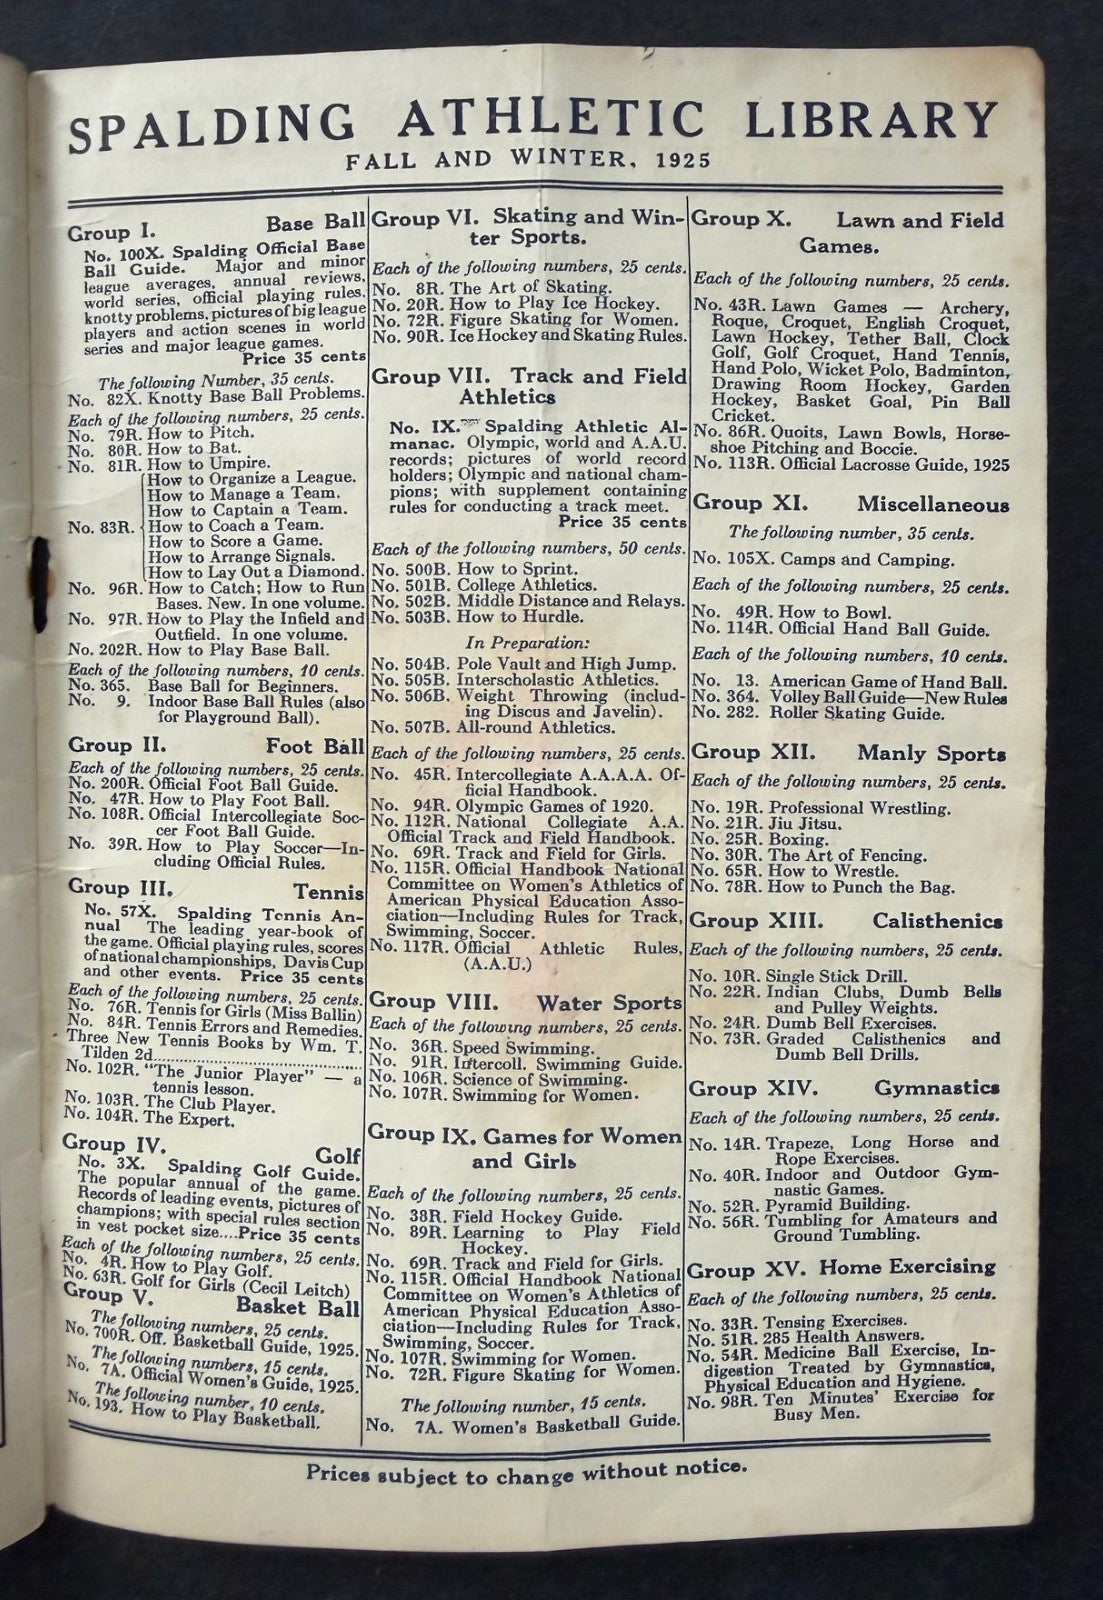 SPALDING ATHLETIC LIBRARY
FALL AND WINTER, 1925
Group I. Base Ball
No. 100X. Spalding Official Base
Ball Guide. Major and minor
league averages, annual reviews,
world series, official playing rules,
knotty problems, pictures of big league
players and action scenes in world
series and major league games.
Price 35 cents
The following Number, 35 cents.
No. 82X. Knotty Base Ball Problems.
Each of the following numbers, 25 cents.
No. 79R. How to Pitch.
No. 80R. How to Bat.
No. 81R. How to Umpire.
How to Organize a League.
How to Manage a Team.
How to Captain a Team.
No. 83R. How to Coach a Team.
How to Score a Game.
How to Arrange Signals.
How to Lay Out a Diamond.
No. 96R. How to Catch; How to Run
Bases. New. In one volume.
No. 97R. How to Play the Infield and
Outfield. In one volume.
No. 202R. How to Play Base Ball.
Each of the following numbers, 10 cents.
No. 365. Base Ball for Beginners.
No. 9. Indoor Base Ball Rules (also
for Playground Ball).
Group II. Foot Ball
Each of the following numbers, 25 cents.
No. 200R. Official Foot Ball Guide.
No. 47R. How to Play Foot Ball.
No. 108R. Official Intercollegiate Soc-
cer Foot Ball Guide.
No. 39R. How to Play Soccer—In-
cluding Official Rules.
Group III. Tennis
No. 57X. Spalding Tennis An-
nual The leading year-book of
the game. Official playing rules, scores
of national championships, Davis Cup
and other events. Price 35 cents
Each of the following numbers, 25 cents.
No. 76R. Tennis for Girls (Miss Ballin)
No. 84R. Tennis Errors and Remedies.
Three New Tennis Books by Wm. T.
Tilden 2d....................................
No. 102R. "The Junior Player" — a
tennis lesson.
No. 103R. The Club Player.
No. 104R. The Expert.
Group IV. Golf
No. 3X. Spalding Golf Guide.
The popular annual of the game.
Records of leading events, pictures of
champions; with special rules section
in vest pocket size....Price 35 cents
Each of the following numbers, 25 cents.
No. 4R. How to Play Golf.
No. 63R. Golf for Girls (Cecil Leitch)
Group V. Basket Ball
The following numbers, 25 cents.
No. 700R. Off. Basketball Guide, 1925.
The following numbers, 15 cents.
No. 7A. Official Women's Guide, 1925.
The following number, 10 cents.
No. 193. How to Play Basketball.
Group VI. Skating and Win-
ter Sports.
Each of the following numbers, 25 cents.
No. 8R. The Art of Skating.
No. 20R. How to Play Ice Hockey.
No. 72R. Figure Skating for Women.
No. 90R. Ice Hockey and Skating Rules.
Group VII. Track and Field
Athletics
No. IX. Spalding Athletic Al-
manac. Olympic, world and A.A.U.
records; pictures of world record
holders; Olympic and national cham-
pions; with supplement containing
rules for conducting a track meet.
Price 35 cents
Each of the following numbers, 50 cents.
No. 500B. How to Sprint.
No. 501B. College Athletics.
No. 502B. Middle Distance and Relays.
No. 503B. How to Hurdle.
In Preparation:
No. 504B. Pole Vault and High Jump.
No. 505B. Interscholastic Athletics.
No. 506B. Weight Throwing (includ-
ing Discus and Javelin).
No. 507B. All-round Athletics.
Each of the following numbers, 25 cents.
No. 45R. Intercollegiate A.A.A.A. Of-
ficial Handbook.
No. 94R. Olympic Games of 1920.
No. 112R. National Collegiate A.A.
Official Track and Field Handbook.
No. 69R. Track and Field for Girls.
No. 115R. Official Handbook National
Committee on Women's Athletics of
American Physical Education Asso-
ciation—Including Rules for Track,
Swimming, Soccer.
No. 117R. Official Athletic Rules,
(A.A.U.)
Group VIII. Water Sports
Each of the following numbers, 25 cents.
No. 36R. Speed Swimming.
No. 91R. Intercoll. Swimming Guide.
No. 106R. Science of Swimming.
No. 107R. Swimming for Women.
Group IX. Games for Women
and Girls
Each of the following numbers, 25 cents.
No. 38R. Field Hockey Guide.
No. 89R. Learning to Play Field
Hockey.
No. 69R. Track and Field for Girls.
No. 115R. Official Handbook National
Committee on Women's Athletics of
American Physical Education Asso-
ciation—Including Rules for Track,
Swimming, Soccer.
No. 107R. Swimming for Women.
No. 72R. Figure Skating for Women.
The following number, 15 cents.
No. 7A. Women's Basketball Guide.
Group X. Lawn and Field
Games.
Each of the following numbers, 25 cents.
No. 43R. Lawn Games — Archery,
Roque, Croquet, English Croquet,
Lawn Hockey, Tether Ball, Clock
Golf, Golf Croquet, Hand Tennis,
Hand Polo, Wicket Polo, Badminton,
Drawing Room Hockey, Garden
Hockey, Basket Goal, Pin Ball
Cricket.
No. 86R. Quoits, Lawn Bowls, Horse-
shoe Pitching and Boccie.
No. 113R. Official Lacrosse Guide, 1925
Group XI. Miscellaneous
The following number, 35 cents.
No. 105X. Camps and Camping.
Each of the following numbers, 25 cents.
No. 49R. How to Bowl.
No. 114R. Official Hand Ball Guide.
Each of the following numbers, 10 cents.
No. 13. American Game of Hand Ball.
No. 364. Volley Ball Guide—New Rules
No. 282. Roller Skating Guide.
Group XII. Manly Sports
Each of the following numbers, 25 cents.
No. 19R. Professional Wrestling.
No. 21R. Jiu Jitsu.
No. 25R. Boxing.
No. 30R. The Art of Fencing.
No. 65R. How to Wrestle.
No. 78R. How to Punch the Bag.
Group XIII. Calisthenics
Each of the following numbers, 25 cents.
No. 10R. Single Stick Drill.
No. 22R. Indian Clubs, Dumb Bells
and Pulley Weights.
No. 24R. Dumb Bell Exercises.
No. 73R. Graded Calisthenics and
Dumb Bell Drills.
Group XIV. Gymnastics
Each of the following numbers, 25 cents.
No. 14R. Trapeze, Long Horse and
Rope Exercises.
No. 40R. Indoor and Outdoor Gym-
nastic Games.
No. 52R. Pyramid Building.
No. 56R. Tumbling for Amateurs and
Ground Tumbling.
Group XV. Home Exercising
Each of the following numbers, 25 cents.
No. 33R. Tensing Exercises.
No. 51R. 285 Health Answers.
No. 54R. Medicine Ball Exercise, In-
digestion Treated by Gymnastics,
Physical Education and Hygiene.
No. 98R. Ten Minutes' Exercise for
Busy Men.
Prices subject to change without notice.